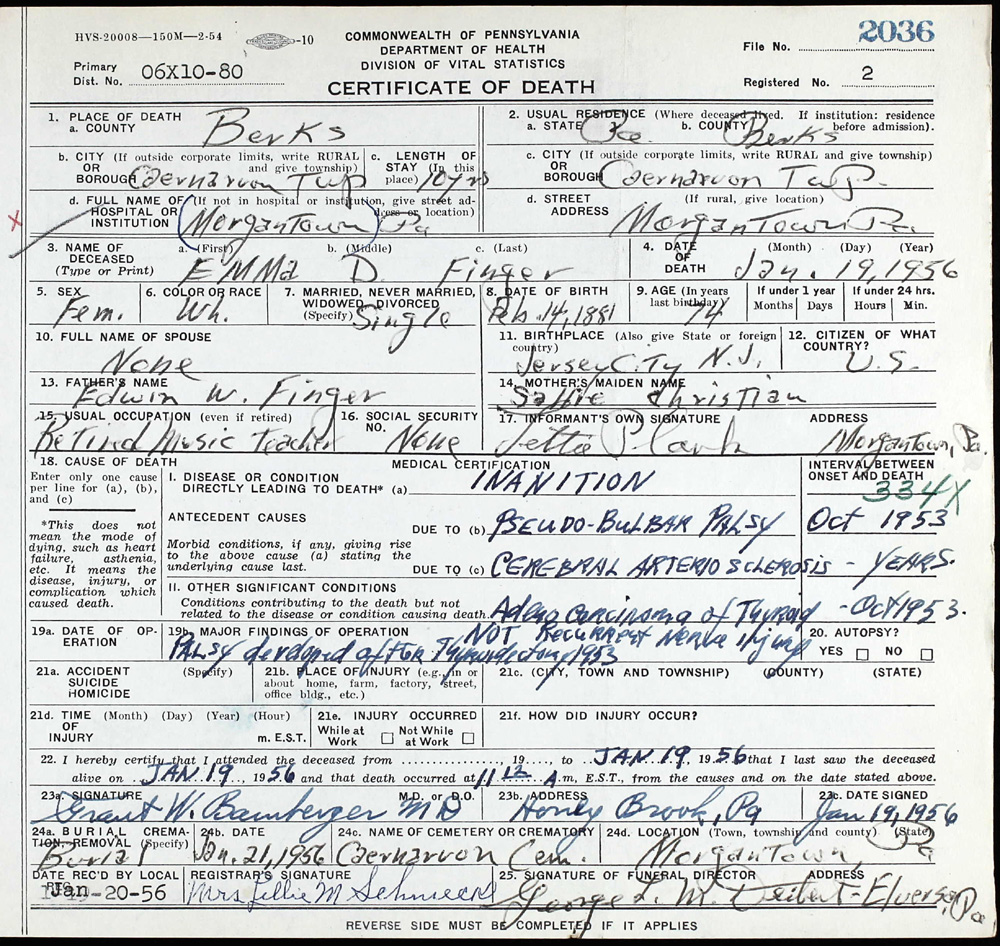 HVS-20008—150M—2-54 -10
COMMONWEALTH OF PENNSYLVANIA
DEPARTMENT OF HEALTH
DIVISION OF VITAL STATISTICS
CERTIFICATE OF DEATH
2036
File No.
Primary
Dist. No. 06X10-80
Registered No. 2
1. PLACE OF DEATH
a. COUNTY Berks
2. USUAL RESIDENCE (Where deceased lived. If institution: residence
a. STATE Pa. b. COUNTY Berks before admission).
b. CITY (If outside corporate limits, write RURAL
OR and give township)
BOROUGH Caernarvon Twp
c. LENGTH OF
STAY (In this
place) 10 yrs
c. CITY (If outside corporate limits, write RURAL and give township)
OR
BOROUGH Caernarvon Twp.
d. FULL NAME OF (If not in hospital or institution, give street ad-
HOSPITAL OR dress or location)
INSTITUTION (Morgantown) Pa
X
d. STREET (If rural, give location)
ADDRESS Morgantown Pa.
3. NAME OF
DECEASED
(Type or Print)
a. (First) b. (Middle) c. (Last)
EMMa D. Finger
4. DATE
OF
DEATH
(Month) (Day) (Year)
Jan. 19, 1956
5. SEX
Fem.
6. COLOR OR RACE
Wh.
7. MARRIED, NEVER MARRIED,
WIDOWED, DIVORCED
(Specify) Single
8. DATE OF BIRTH
Feb. 14, 1881
9. AGE (In years
last birthday)
74
If under 1 year
Months Days
If under 24 hrs.
Hours Min.
10. FULL NAME OF SPOUSE
None
11. BIRTHPLACE (Also give State or foreign
country)
Jersey City N.J.
12. CITIZEN OF WHAT
COUNTRY?
U.S.
13. FATHER'S NAME
Edwin W. Finger
14. MOTHER'S MAIDEN NAME
Sallie Christian
15. USUAL OCCUPATION (even if retired)
Retired Music Teacher
16. SOCIAL SECURITY
NO. None
17. INFORMANT'S OWN SIGNATURE ADDRESS
Plank Morgantown, Pa.
18. CAUSE OF DEATH
Enter only one cause
per line for (a), (b),
and (c)
*This does not
mean the mode of
dying, such as heart
failure, asthenia,
etc. It means the
disease, injury, or
complication which
caused death.
MEDICAL CERTIFICATION
I. DISEASE OR CONDITION
DIRECTLY LEADING TO DEATH* (a) INANITION
INTERVAL BETWEEN
ONSET AND DEATH
334X
ANTECEDENT CAUSES
DUE TO (b) PSEUDO-BULBAR PALSY Oct 1953
Morbid conditions, if any, giving rise
to the above cause (a) stating the
underlying cause last.
DUE TO (c) CEREBRAL ARTERIOSCLEROSIS - YEARS.
II. OTHER SIGNIFICANT CONDITIONS
Conditions contributing to the death but not
related to the disease or condition causing death. Adeno carcinoma of Thyroid - Oct 1953.
19a. DATE OF OP-
ERATION
19b. MAJOR FINDINGS OF OPERATION
NOT Recurrent Nerve Injury
PALSY developed after Thyroidectomy 1953
20. AUTOPSY?
YES NO
21a. ACCIDENT (Specify)
SUICIDE
HOMICIDE
21b. PLACE OF INJURY (e.g., in or
about home, farm, factory, street,
office bldg., etc.)
21c. (CITY, TOWN AND TOWNSHIP) (COUNTY) (STATE)
21d. TIME (Month) (Day) (Year) (Hour)
OF
INJURY m. E.S.T.
21e. INJURY OCCURRED
While at Not While
Work at Work
21f. HOW DID INJURY OCCUR?
22. I hereby certify that I attended the deceased from ................, 19...., to JAN 19, 1956 that I last saw the deceased
alive on JAN 19, 1956 and that death occurred at 11 12 A.m, E.S.T., from the causes and on the date stated above.
23a. SIGNATURE M.D. or D.O.
Grant W. Bamberger MD
23b. ADDRESS
Honey Brook, Pa
23c. DATE SIGNED
Jan 19, 1956
24a. BURIAL CREMA-
TION, REMOVAL (Specify)
Burial
24b. DATE
Jan. 21, 1956
24c. NAME OF CEMETERY OR CREMATORY
Caernarvon Cem.
24d. LOCATION (Town, township and county) (State)
Morgantown, Pa
DATE REC'D BY LOCAL
REG.
Jan-20-56
REGISTRAR'S SIGNATURE
Mrs. Lillie M
25. SIGNATURE OF FUNERAL DIRECTOR ADDRESS
George L. M. Deibert - Elverson, Pa
REVERSE SIDE MUST BE COMPLETED IF IT APPLIES